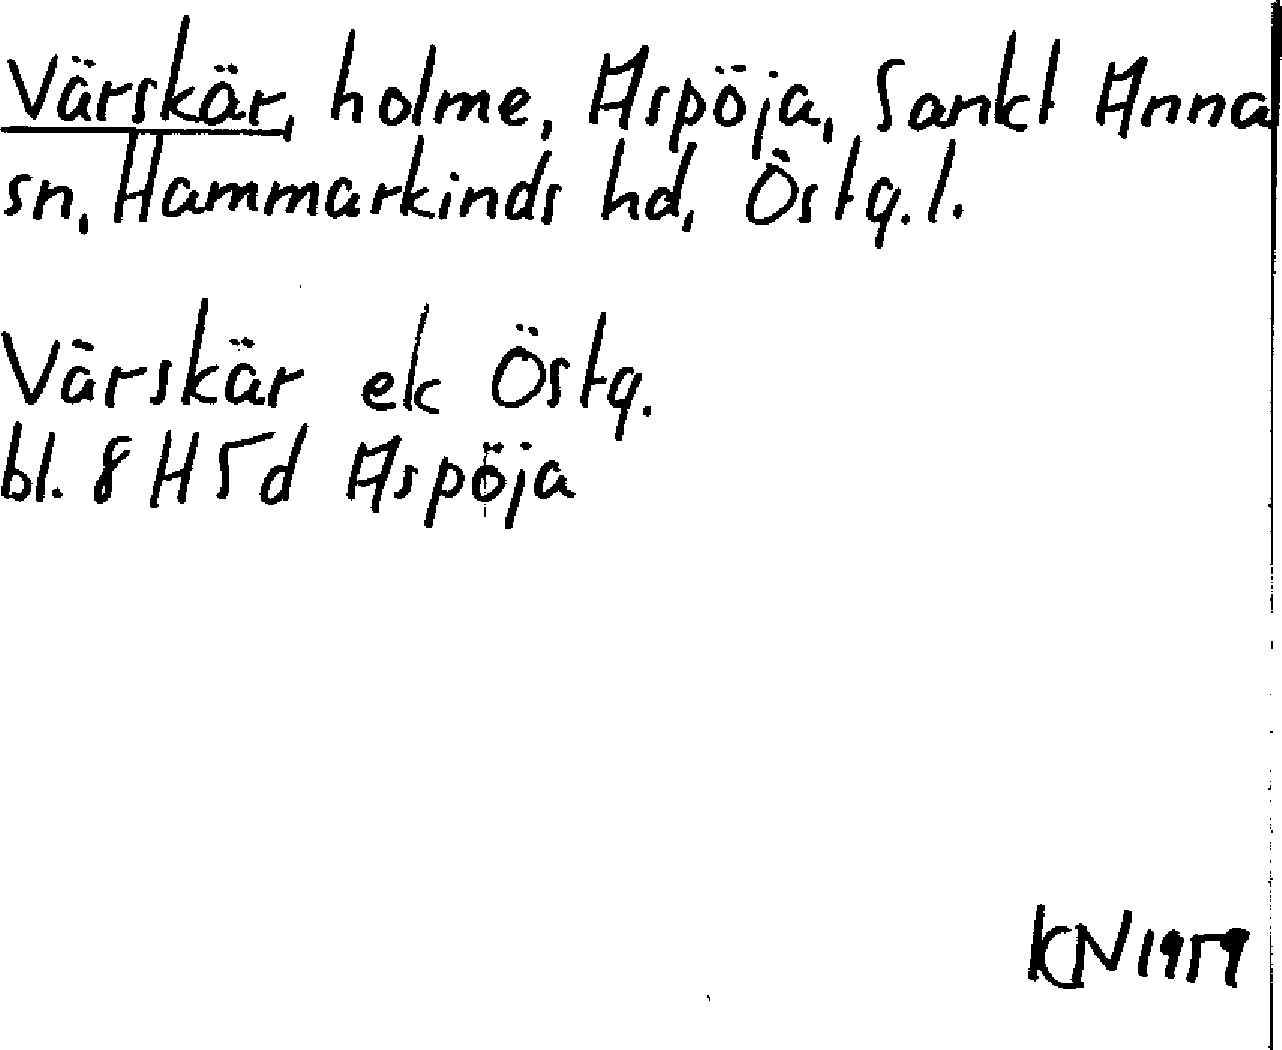 Värskär, holme, Aspöja, Sankt Anna
sn, Hammarkinds hd, Östg. l.
Värskär ek Östg.
bl. 8 H 5d Aspöja
KN 1959